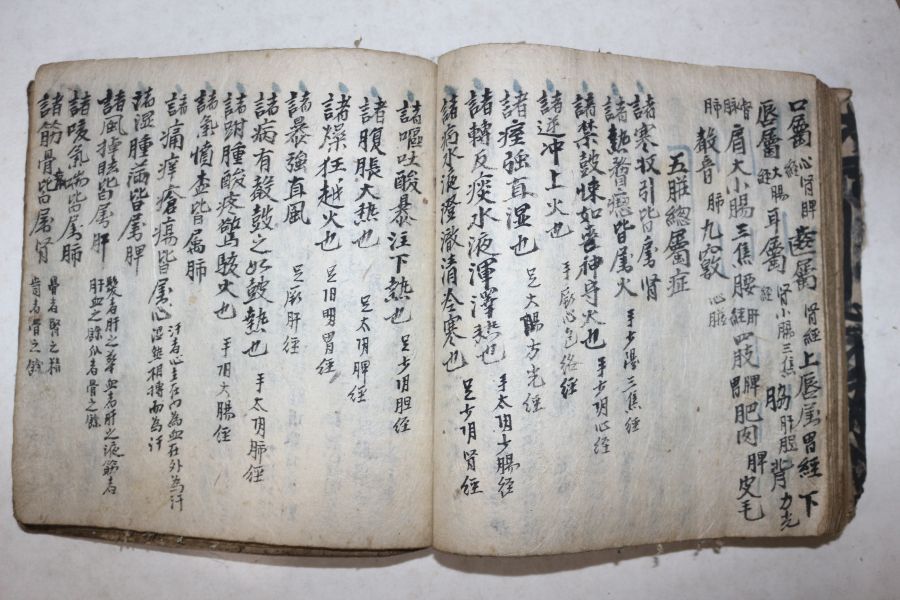 口屬 心腎脾經 舌屬 腎經 上唇屬胃經 下
唇屬 大腸經 耳屬 腎小腸三焦經 脇 肝胆 背
肩大小腸三焦腰 肝經 四肢 脾胃 肥肉 脾 皮毛
肺 聲音 肺 九竅 心
五臟總屬症
諸寒收引皆屬腎 手少陽三焦經
諸熱瞀瘛皆屬火 手少陰心經
諸禁鼓慄如喪神守火也
諸逆冲上火也 手厥心包絡經
諸痙強直湿也 足太陽方光經
諸轉反痰水液渾澤熱也 手太阴小腸經
諸病水液澄澈清冷寒也 足少阴腎經
諸嘔吐酸暴注下熱也 足少阴胆經
諸腹脹大熱也 足太阴脾經
諸燥狂越火也 足阳明胃經
諸暴強直風 足厥肝經
諸病有聲鼓之如鼓熱也 手太阴肺經
諸跗腫酸疼驚駭火也 手阳大腸經
諸氣憤皆属肺
諸痛痒瘡瘍皆属心 汗者心主在內為血在外為汗 湿熱相搏而為汗
諸湿腫滿皆属脾
諸風掉眩皆属肝 髮者肝之華血者肝之液筋者 肝血之餘爪者骨之餘
諸痿氣喘皆属肺
諸筋骨皆属腎 骨者腎之精 齒者骨之餘